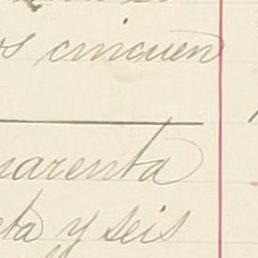 os cincuen
uarenta
ta y seis